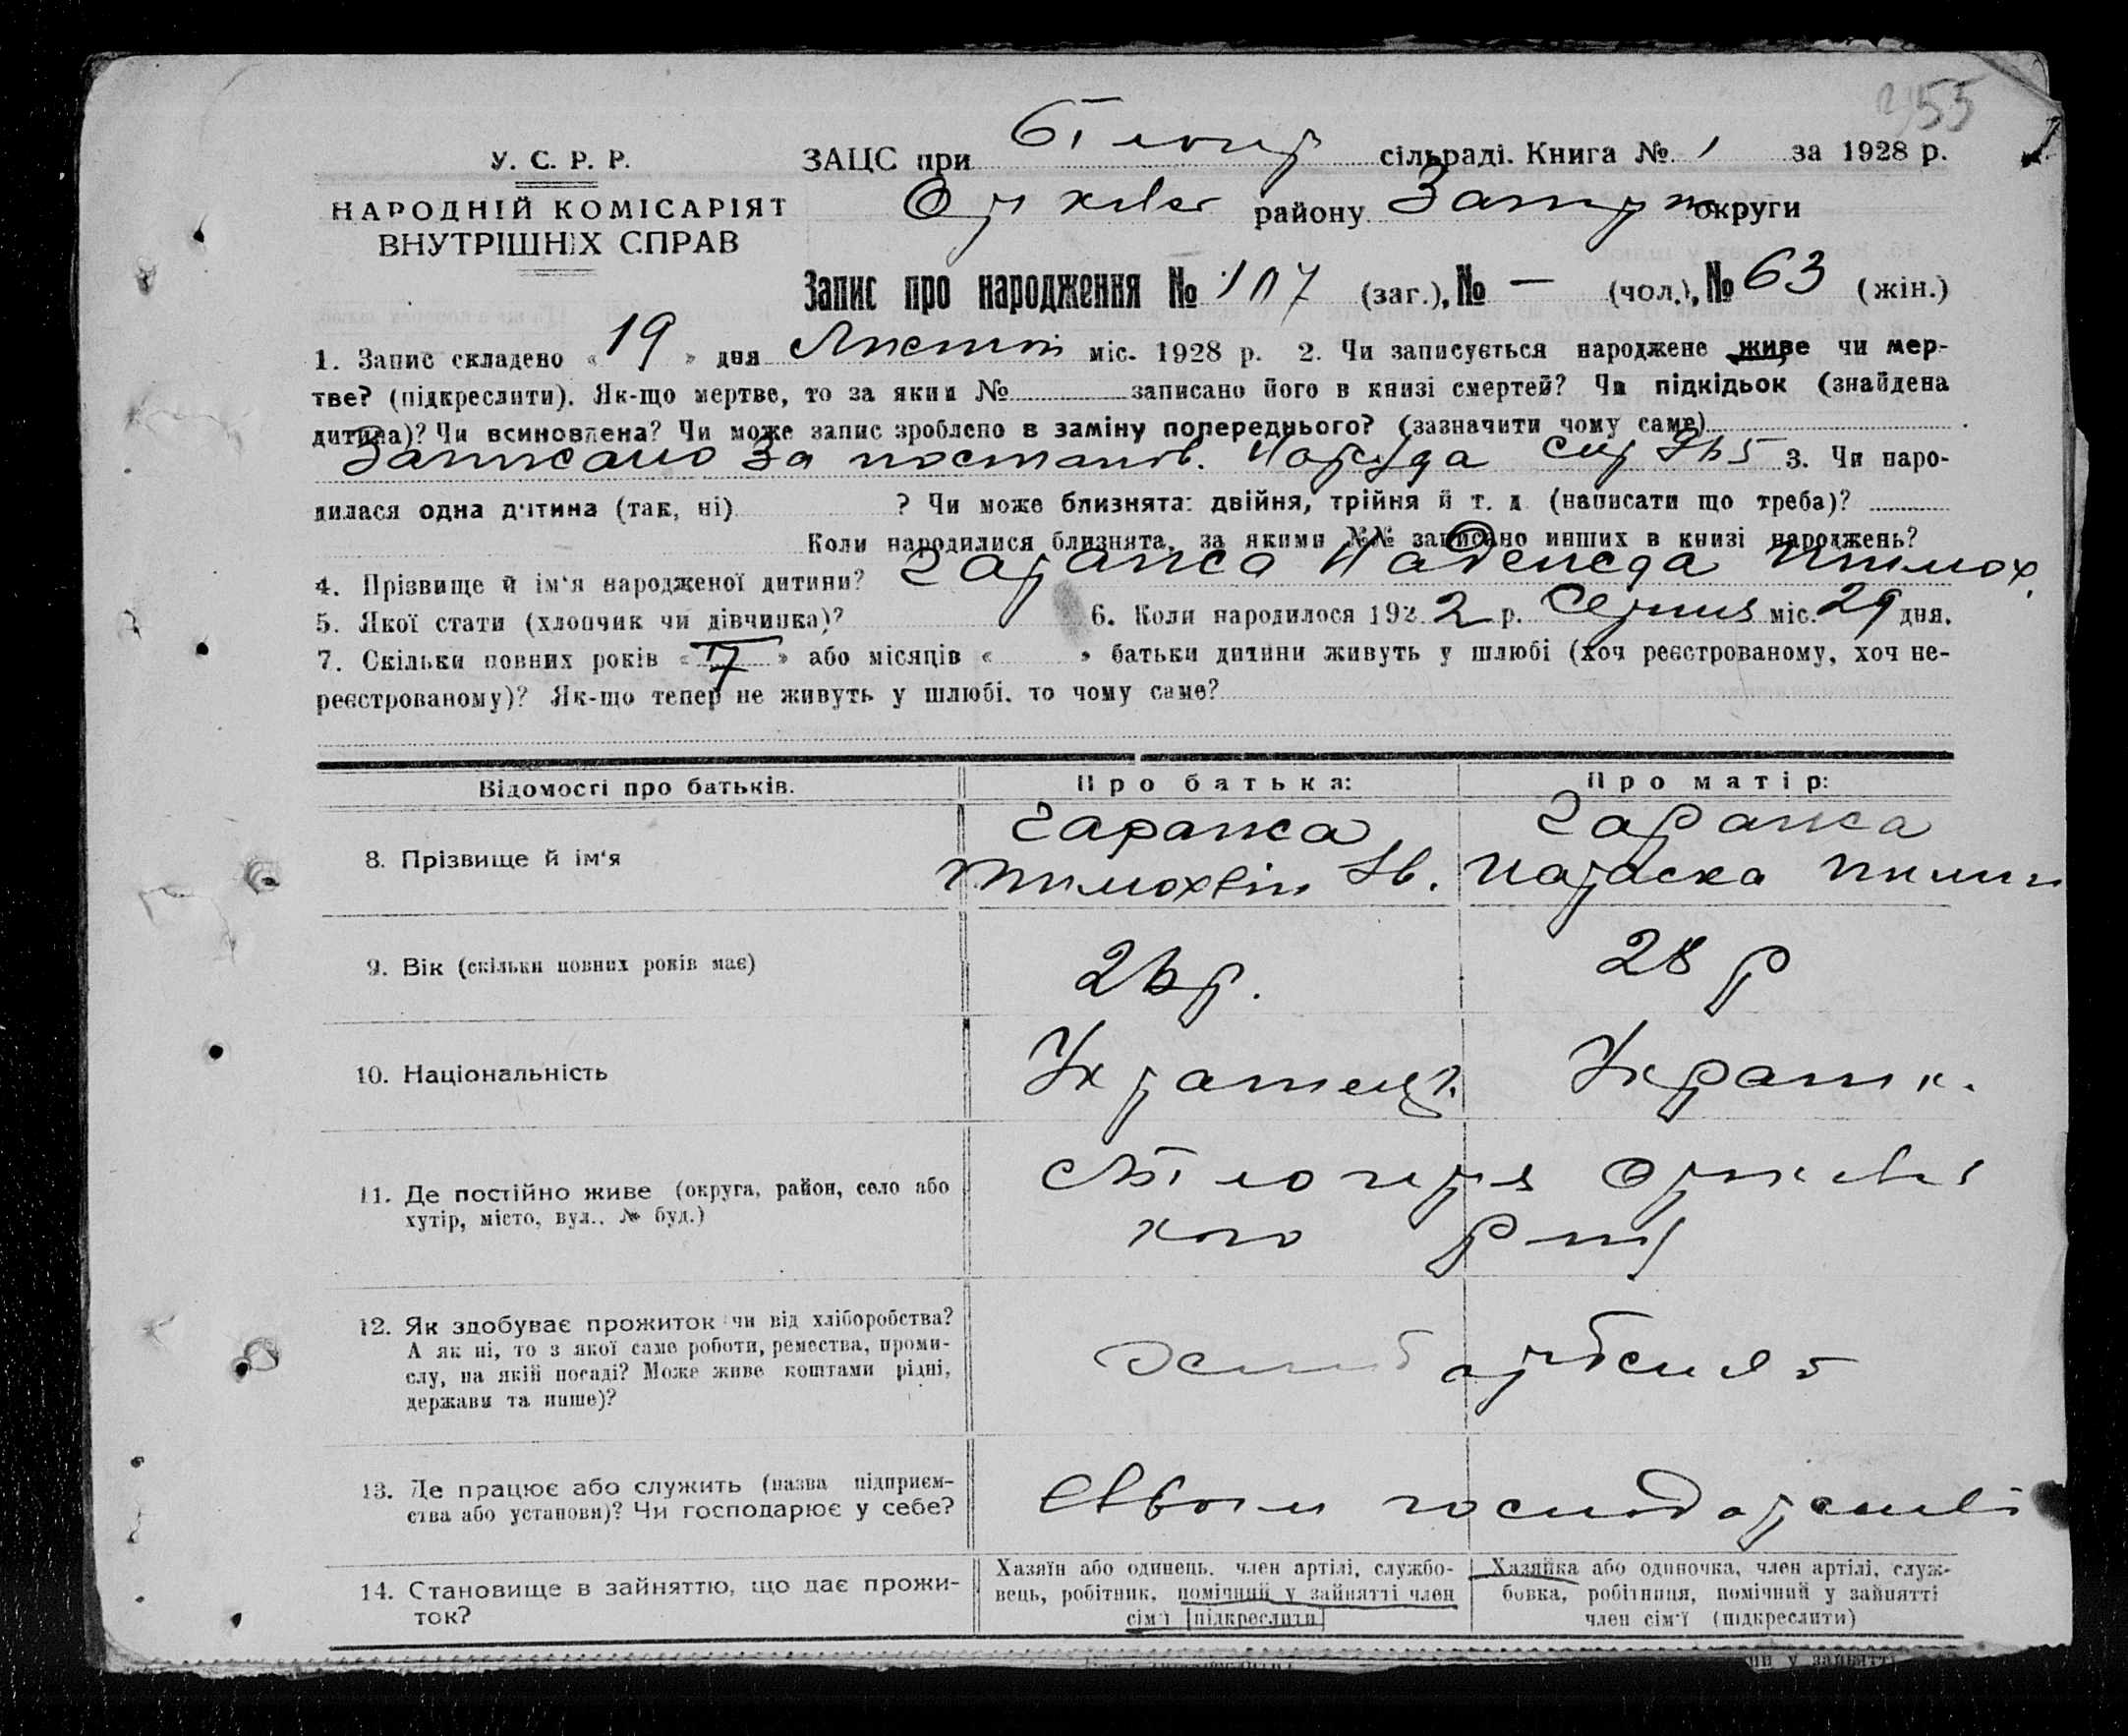 255
У. С. Р. Р.
НАРОДНІЙ КОМІСАРІЯТ
ВНУТРІШНІХ СПРАВ
ЗАЦС при Білоцер сільраді. Книга № 1 за 1928 р.
району округи
Запис про народження № 107 (заг.), № — (чол.), № 63 (жін.)
1. Запис складено « 19 » дня міс. 1928 р. 2. Чи записується народжене живе чи мер-
тве? (підкреслити). Як-що мертве, то за яким № записано його в книзі смертей? Чи підкідьок (знайдена
дитина)? Чи всиновлена? Чи може запис зроблено в заміну попереднього? (зазначити чому саме)
Записано за постанов. 3. Чи наро-
дилася одна дитина (так, ні) ? Чи може близнята: двійня, трійня й т. д (написати що треба)?
Коли народилися близнята, за якими №№ записано инших в книзі народжень?
4. Прізвище й ім‘я народженої дитини? Гаражса Надежда Тимох.
5. Якої стати (хлопчик чи дівчинка)? 6. Коли народилося 192 2 р. Серпня міс. 29 дня.
7. Скільки повних років « » або місяців « » батьки дитини живуть у шлюбі (хоч реєстрованому, хоч не-
реєстрованому)? Як-що тепер не живуть у шлюбі, то чому саме?
Відомості про батьків.
Про батька:
Про матір:
8. Прізвище й ім‘я
Тимохвій Ів.
Параска
9. Вік (скільки повних років має)
28 р
10. Національність
Украінець
Україн к.
11. Де постійно живе (округа, район, село або
хутір, місто, вул., № буд.)
кого
12. Як здобуває прожиток чи від хліборобства?
А як ні, то з якої саме роботи, ремества, проми-
слу, на якій посаді? Може живе коштами рідні,
держави та инше)?
13. Де працює або служить (назва підприєм-
ства або установи)? Чи господарює у себе?
господарстві
14. Становище в зайняттю, що дає прожи-
ток?
Хазяїн або одинець, член артілі, службо-
вець, робітник, помічний у зайнятті член
сім‘ї [підкреслити]
Хазяйка або одиночка, член артілі, служ-
бовка, робітниця, помічний у зайнятті
член сім‘ї (підкреслити)